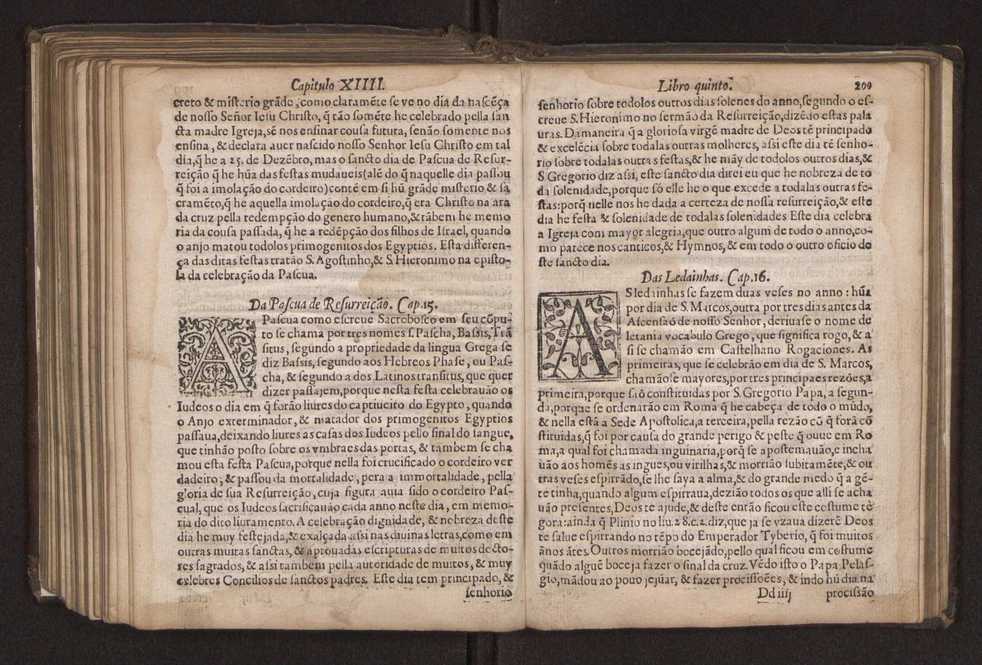 Capitulo XIIII.
creto & misterio grãde, como claramẽte se ve no dia da nascẽça
de nosso Señor Iesu Christo, q̃ tão somẽte he celebrado pella san
cta madre Igreja, sẽ nos ensinar cousa futura, senão somente nos
ensina, & declara auer nascido nosso Senhor Iesu Christo em tal
dia, q̃ he a 25. de Dezẽbro, mas o sancto dia de Pascua de Resur-
reição q̃ he hũa das festas mudaueis (alé do q̃ naquelle dia passou
q̃ foi a imolação do cordeiro) contẽ em si hũ grãde misterio & sa
cramẽto, q̃ he aquella imolação do cordeiro, q̃ era Christo na ara
da cruz pella redempção do genero humano, & tãbem he memo
ria da cousa passada, q̃ he a redẽpção dos filhos de Israel, quando
o anjo matou todolos primogenitos dos Egyptios. Esta differen-
ça das ditas festas tratão S. Agostinho, & S. Hieronimo na episto-
la da celebração da Pascua.
Da Pascua de Resurreição. Cap. 15.
A Pascua como escreue Sacrobosco em seu cõpu-
to se chama por tres nomes s. Pascha, Bassis, Trã
situs, segundo a propriedade da lingua Grega se
diz Bassis, segundo aos Hebreos Phase, ou Pas-
cha, & segundo a dos Latinos transitus, que quer
dizer passajem, porque nesta festa celebrauão os
Iudeos o dia em q̃ forão liures do captiueiro do Egypto, quando
o Anjo exterminador, & matador dos primogenitos Egyptios
passaua, deixando liures as casas dos Iudeos pello sinal do sangue,
que tinhão posto sobre os vmbraes das portas, & tambem se cha
mou esta festa Pascua, porque nella foi crucificado o cordeiro ver
dadeiro, & passou da mortalidade, pera a immortalidade, pella
gloria de sua Resurreição, cuja figura auia sido o cordeiro Pas-
cual, que os Iudeos sacrificauão cada anno neste dia, em memo-
ria do dito liuramento. A celebração dignidade, & nobreza deste
dia he muy festejada, & exalçada assi nas diuinas letras, como em
outras muitas sanctas, & aprouadas escripturas de muitos docto-
res sagrados, & assi tambem pella autoridade de muitos, & muy
celebres Concilios de sanctos padres. Este dia tem principado, &
senhorio
Libro quinto. 209
senhorio sobre todolos outros dias solenes do anno, segundo o es-
creue S. Hieronimo no sermão da Resurreição, dizẽdo estas pala
uras. Da maneira q̃ a gloriosa virgẽ madre de Deos tẽ principado
& excelẽcia sobre todalas outras molheres, assi este dia tẽ senho-
rio sobre todalas outras festas, & he mãy de todolos outros dias, &
S. Gregorio diz assi, este sancto dia direi eu que he nobreza de to
da solenidade, porque só elle he o que excede a todalas outras fe-
stas: porq̃ nelle nos he dada a certeza de nossa resurreição, & este
dia he festa & solenidade de todalas solenidades Este dia celebra
a Igreja com mayor alegria, que outro algum de todo o anno, co-
mo parece nos canticos, & Hymnos, & em todo o outro oficio de
ste sancto dia.
Das Ledainhas. Cap. 16.
AS ledainhas se fazem duas veses no anno: hũa
por dia de S. Marcos, outra por tres dias antes da
Ascensaõ de nosso Senhor, deriuase o nome de
letania vocabulo Grego, que significa rogo, & a
si se chamão em Castelhano Rogaciones. As
primeiras, que se celebrão em dia de S. Marcos,
chamãose mayores, por tres principaes rezões, a
primeira, porque saõ constituidas por S. Gregorio Papa, a segun-
da, porque se ordenarão em Roma q̃ he cabeça de todo o mũdo,
& nella está a Sede Apostolica, a terceira, pella rezão cõ q̃ forã cõ
stituidas, q̃ foi por causa do grande perigo & peste q̃ ouue em Ro
ma, a qual foi chamada inguinaria, porq̃ se apostemauão, e incha
uão aos homẽs as ingues, ou virilhas, & morrião subitamẽte, & ou
tras veses espirrãdo, se lhe saya a alma, & do grande medo q̃ a gẽ-
te tinha, quando algum espirraua, dezião todos os que alli se acha
uão presentes, Deos te ajude, & deste então ficou este costume tẽ
gora: ainda q̃ Plinio no liu. 28. c. 2. diz, que ja se vzaua dizerẽ Deos
te salue espirrando no tẽpo do Emperador Tyberio, q̃ foi muitos
ãnos ãtes. Outros morrião bocejãdo, pello qual ficou em costume
quãdo alguẽ boceja fazer o sinal da cruz. Vẽdo isto o Papa Pelas-
gio, mãdou ao pouo jejũar, & fazer procissoẽes, & indo hũ dia na
Dd iiij procissão